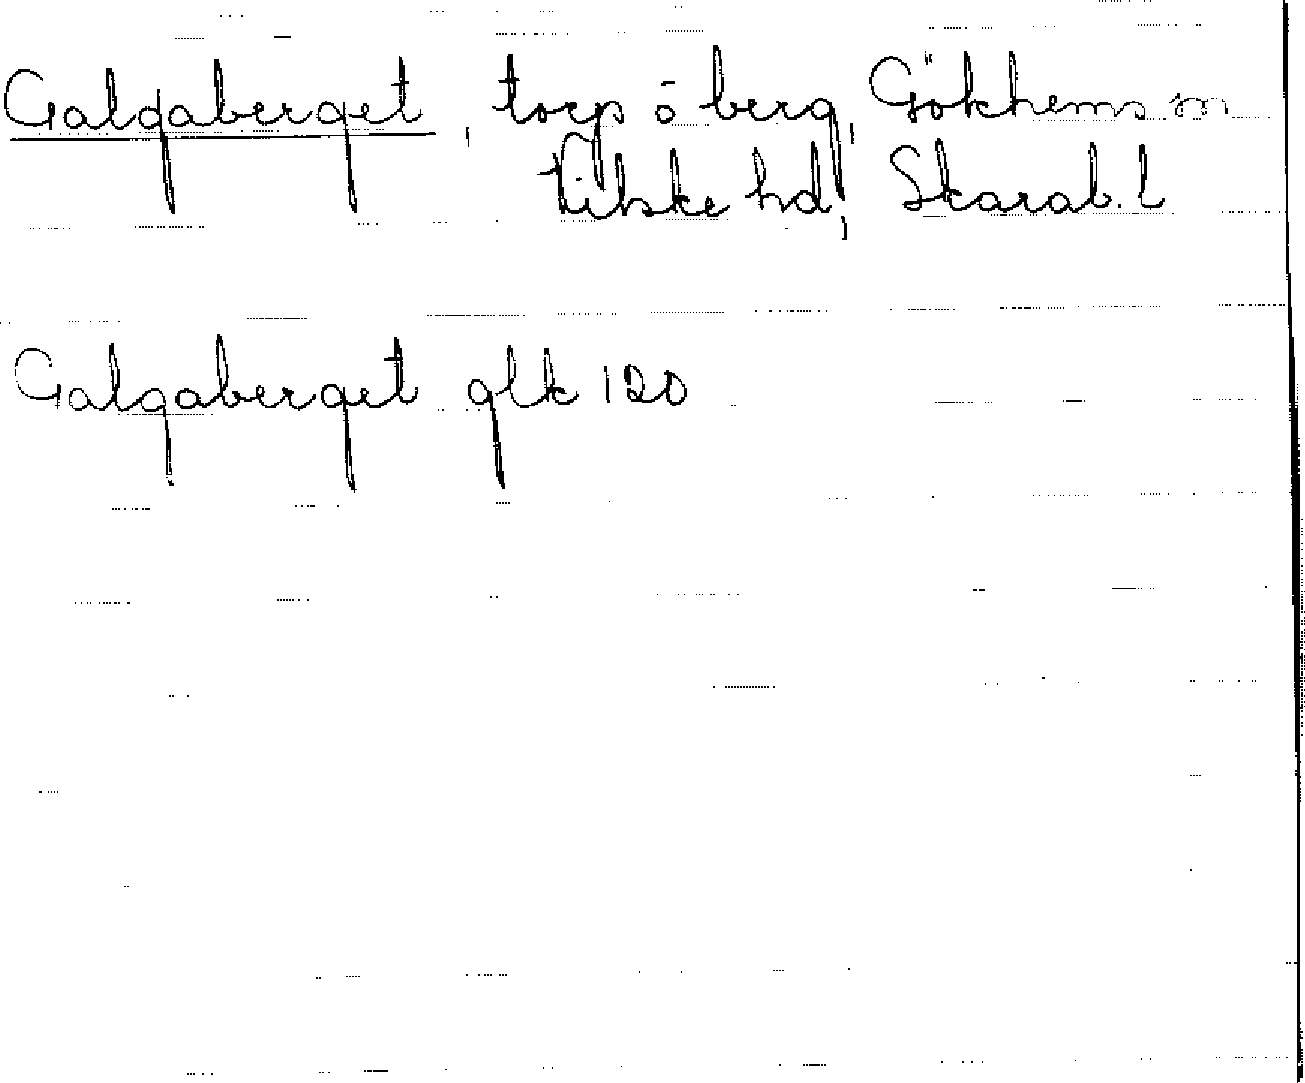 Galgaberget, torp o berg, Gökhems sn
Vilske hd, Skarab. l
Galgaberget glk 120